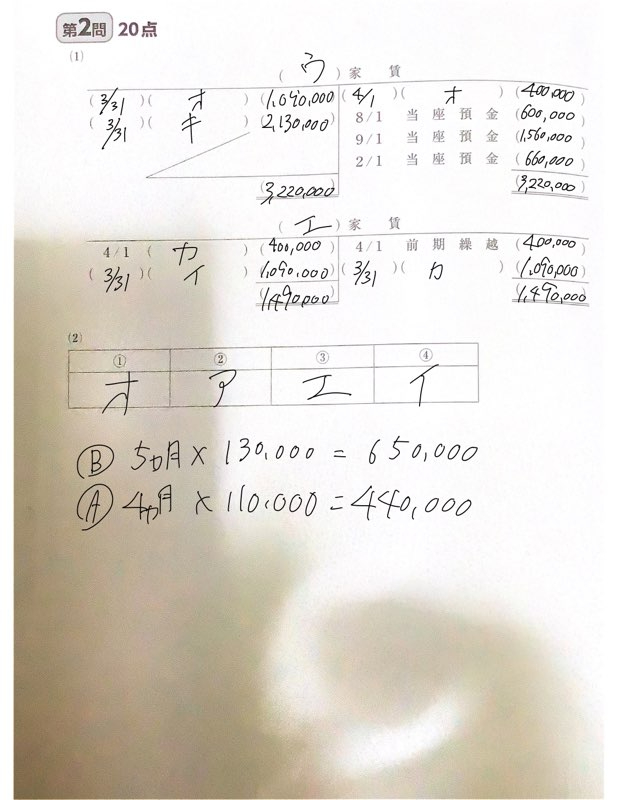 第2問 20点
(1)
( ウ ) 家 賃
( 3/31 ) ( オ ) (1,090,000) ( 4/1 ) ( オ ) (400,000)
( 3/31 ) ( キ ) (2,130,000) 8/1 当 座 預 金 (600,000)
9/1 当 座 預 金 (1,560,000)
2/1 当 座 預 金 (660,000)
(3,220,000) (3,220,000)
( エ ) 家 賃
4/1 ( カ ) (400,000) 4/1 前 期 繰 越 (400,000)
( 3/31 ) ( イ ) (1,090,000) ( 3/31 ) ( カ ) (1,090,000)
(1,490,000) (1,490,000)
(2)
① ② ③ ④
オ ア エ イ
Ⓑ 5ヵ月 × 130,000 = 650,000
Ⓐ 4ヵ月 × 110,000 = 440,000